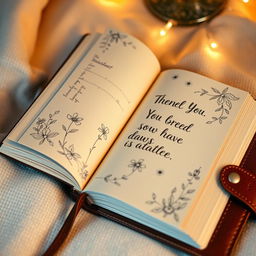 Thenel You,
You breed
sow have
daws us
is atallee.